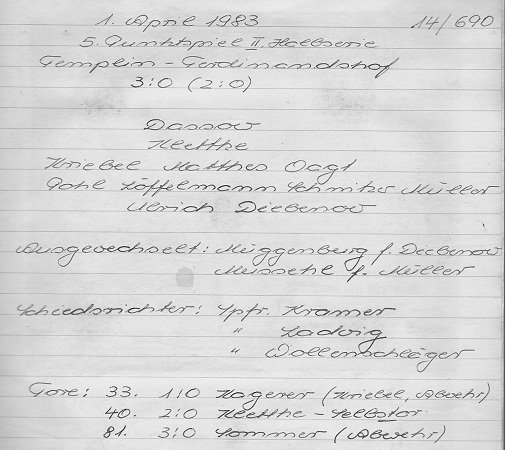 1. April 1983 14/690
5. Punktspiel II. Halbserie
Templin - Ferdinandshof
3:0 (2:0)
Dassow
Kletthe
Kriebel Matthes Vagt
Pohl Löffelmann Schnitzer Müller
Ulrich Diebenow
Ausgewechselt: Müggenburg f. Diebenow
Mussehl f. Müller
Schiedsrichter: Spfr. Kramer
" Ladwig
" Wollenschläger
Tore: 33. 1:0 Hagerer (Kriebel, Abwehr)
40. 2:0 Kletthe - Selbstor
81. 3:0 Sommer (Abwehr)